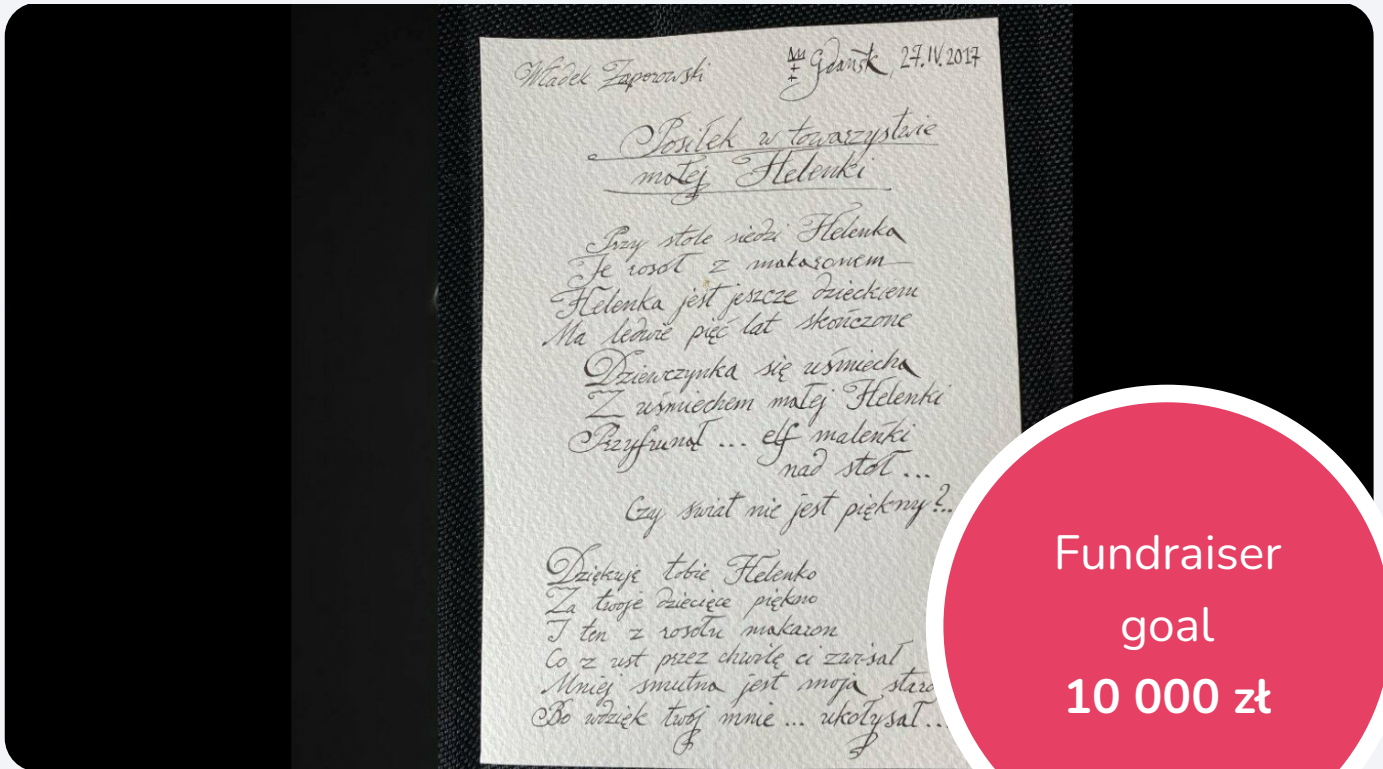 Władek Zaporowski
Gdańsk, 27.IV.2017
Posiłek w towarzystwie
małej Helenki
Przy stole siedzi Helenka
Je rosół z makaronem
Helenka jest jeszcze dzieckiem
Ma ledwie pięć lat skończone
Dziewczynka się uśmiecha
Z uśmiechem małej Helenki
Przyfrunął ... elf maleńki
nad stół ...
Czy świat nie jest piękny?..
Dziękuję tobie Helenko
Za twoje dziecięce piękno
I ten z rosołu makaron
Co z ust przez chwilę ci zwisał
Mniej smutna jest moja
Bo wdzięk twój mnie ... ukołysał...
Fundraiser
goal
10 000 zł